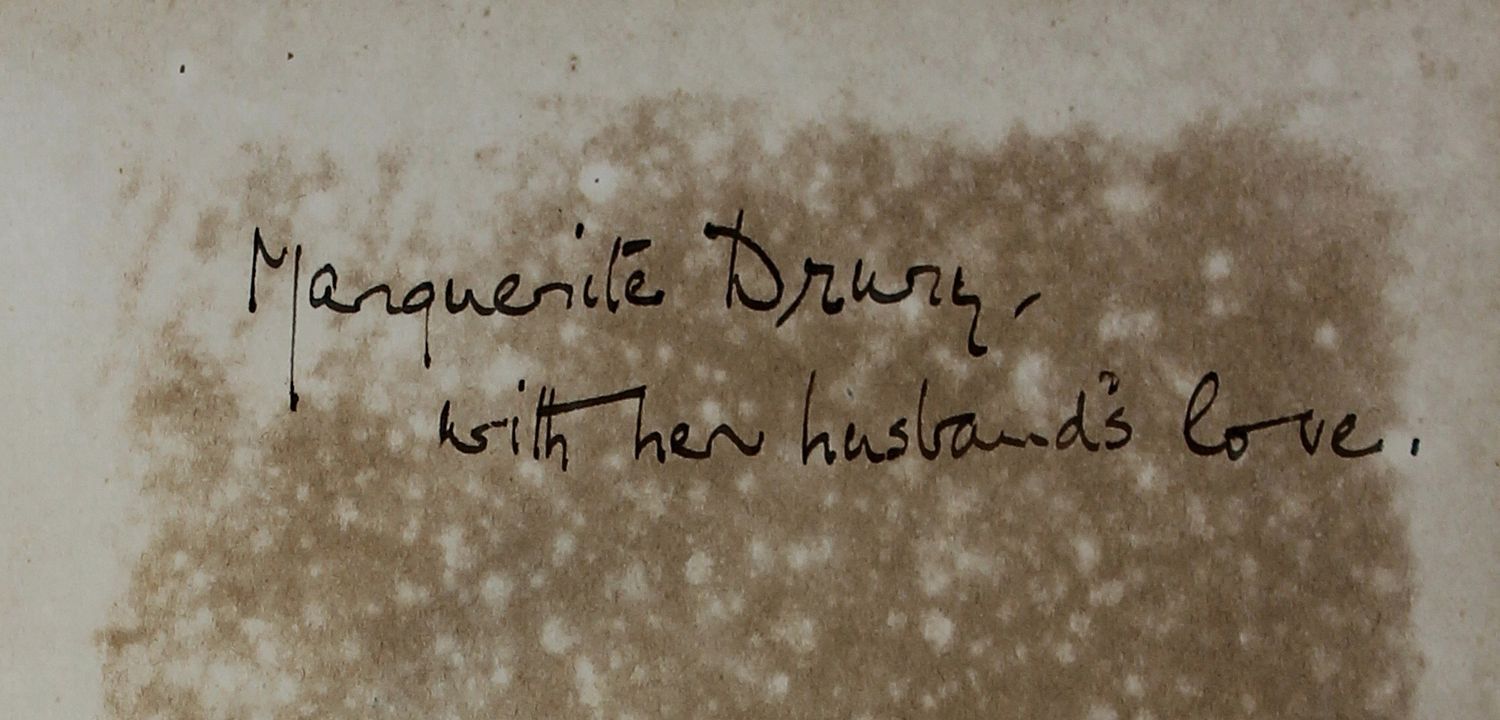 Marguerite Drury,
with her husband's love.